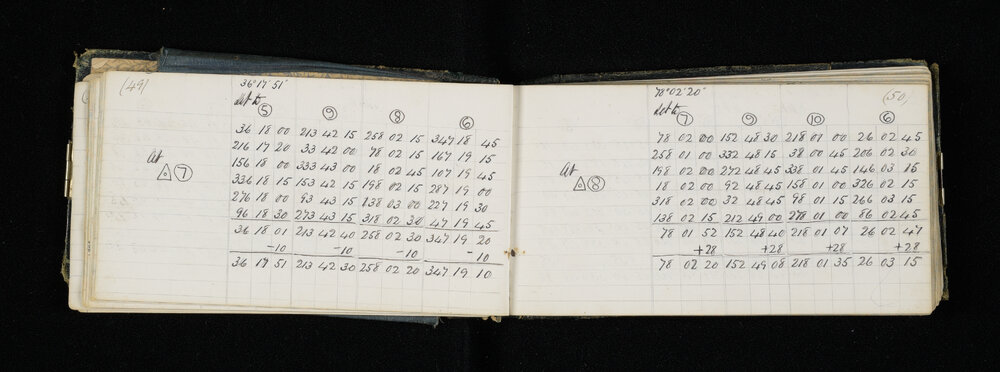 (49)
36° 17' 51"
set to
⑤ ⑨ ⑧ ⑥
36 18 00 213 42 15 258 02 15 347 18 45
216 17 20 33 42 00 78 02 15 167 19 15
156 18 00 333 43 00 18 02 45 107 19 45
At
△ ⑦
336 18 15 153 42 15 198 02 15 287 19 00
276 18 00 93 43 15 138 03 00 227 19 30
96 18 30 273 43 15 318 02 30 47 19 45
36 18 01 213 42 40 258 02 30 347 19 20
-10 -10 -10 -10
36 17 51 213 42 30 258 02 20 347 19 10
(50)
78° 02' 20"
set to
⑦ ⑨ ⑩ ⑥
78 02 00 152 48 30 218 01 00 26 02 45
258 01 00 332 48 15 38 00 45 206 02 30
198 02 00 272 48 45 338 01 45 146 03 15
At
△ ⑧
18 02 00 92 48 45 158 01 00 326 02 15
318 02 00 32 48 45 98 01 15 266 03 15
138 02 15 212 49 00 278 01 00 86 02 45
78 01 52 152 48 40 218 01 07 26 02 47
+28 +28 +28 +28
78 02 20 152 49 08 218 01 35 26 03 15